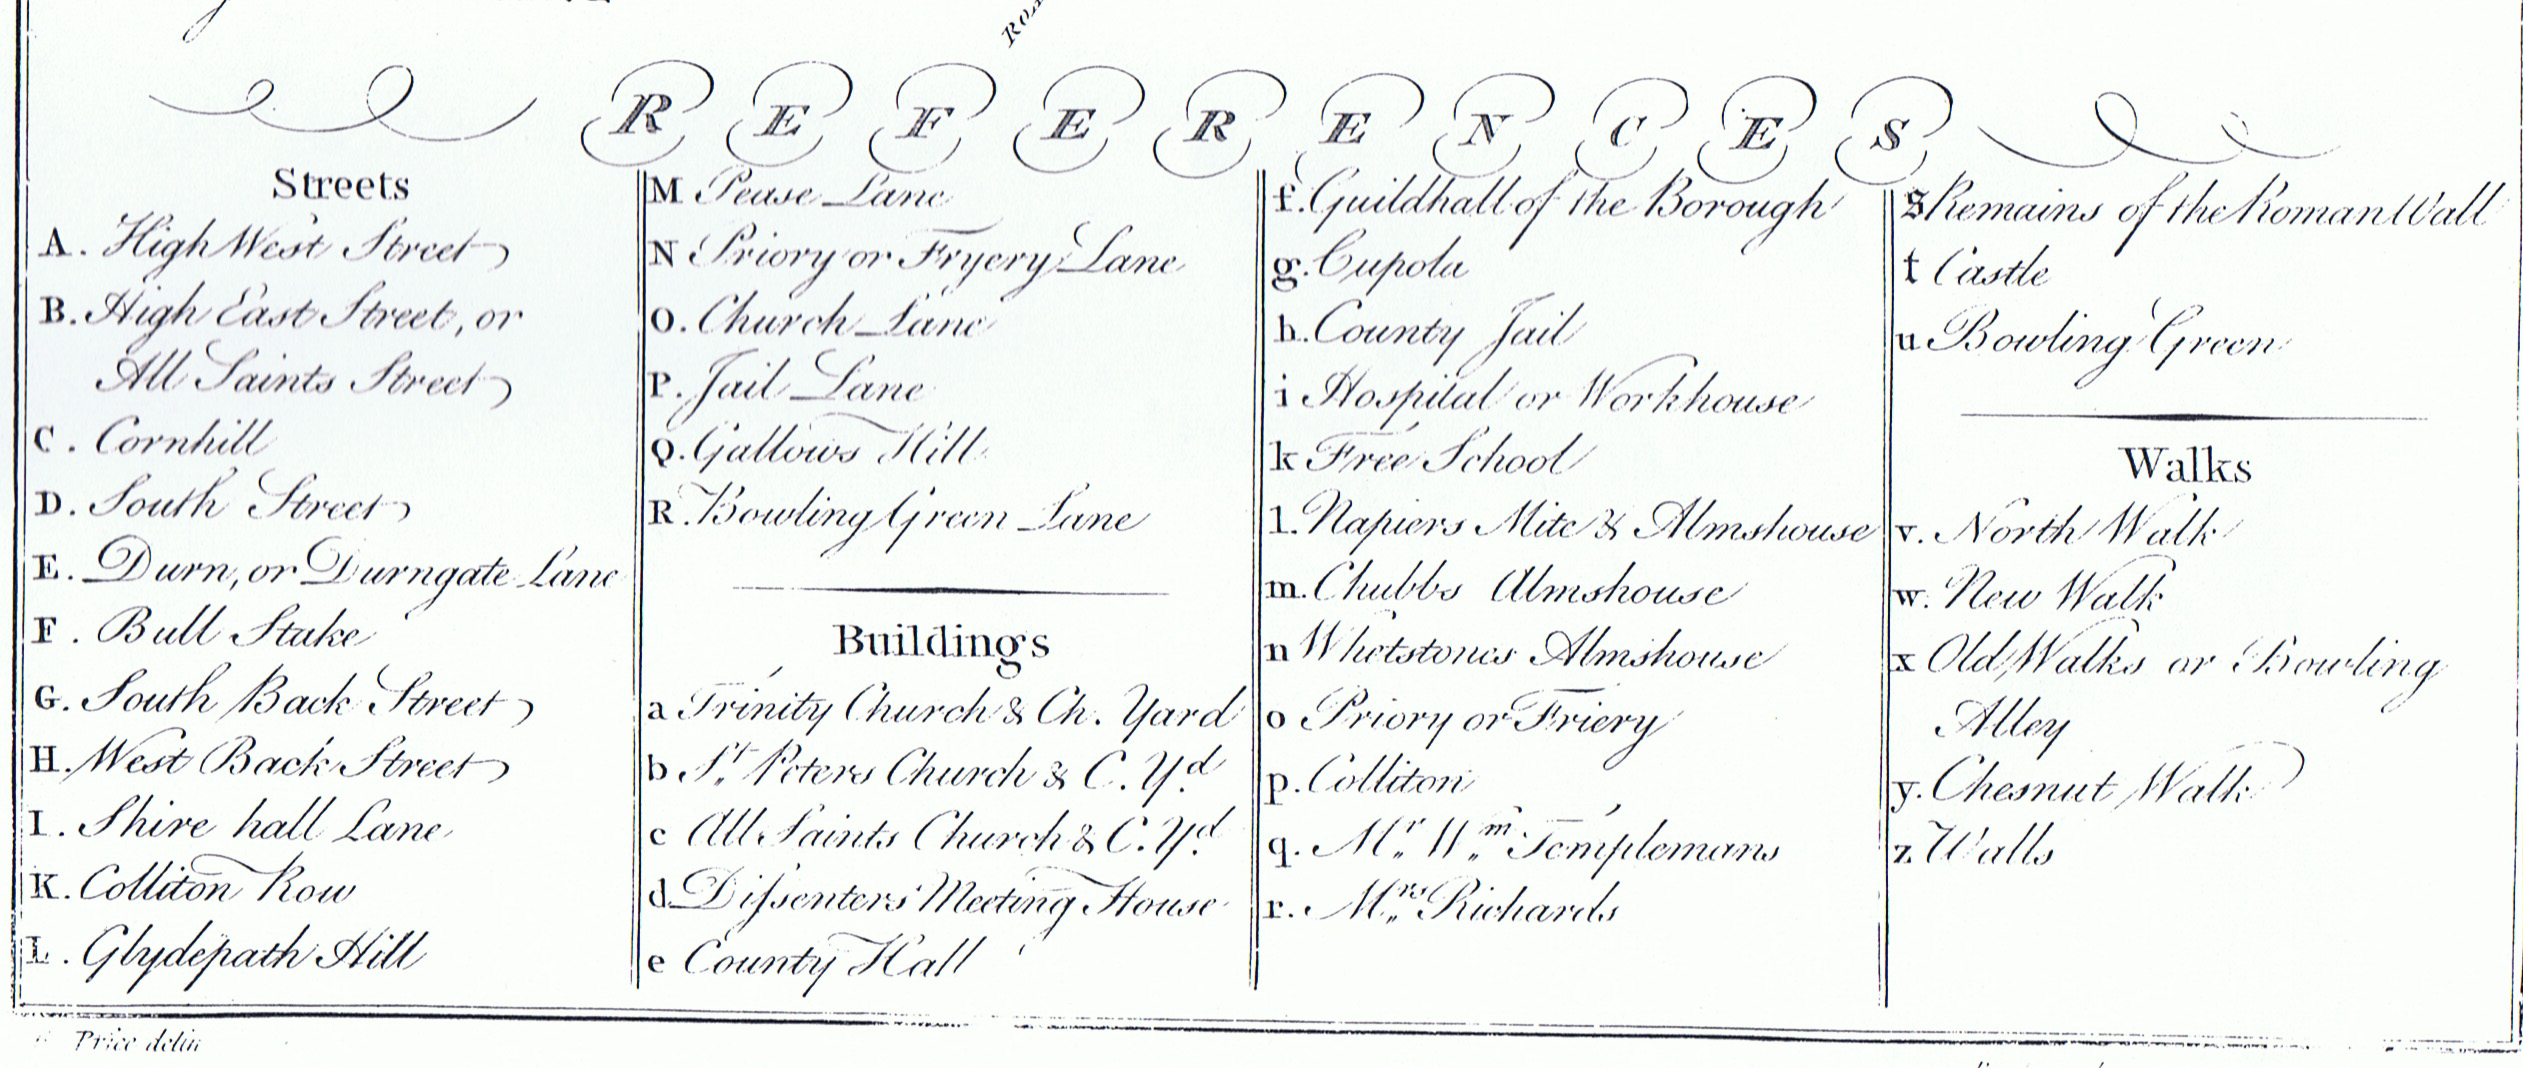 REFERENCES
Streets
A. High West Street
B. High East Street, or
All Saints Street
C. Cornhill
D. South Street
E. Durn, or Durngate Lane
F. Bull Stake
G. South Back Street
H. West Back Street
I. Shire hall Lane
K. Colliton Row
L. Glydepath Hill
M Pease Lane
N Priory or Fryery Lane
O. Church Lane
P. Jail Lane
Q. Gallows Hill
R. Bowling Green Lane
Buildings
a Trinity Church & Ch. Yard
b St. Peters Church & C. Yd.
c All Saints Church & C. Yd.
d Dissenters Meeting House
e County Hall
f. Guildhall of the Borough
g. Cupola
h. County Jail
i Hospital or Workhouse
k Free School
l. Napiers Mite & Almshouse
m. Chubbs Almshouse
n Whetstones Almshouse
o Priory or Friery
p. Colliton
q. Mr. Wm. Templemans
r. Mrs. Richards
s Remains of the Roman Wall
t Castle
u Bowling Green
Walks
v. North Walk
w. New Walk
x Old Walks or Bowling
Alley
y. Chesnut Walk
z Walls
Price delin